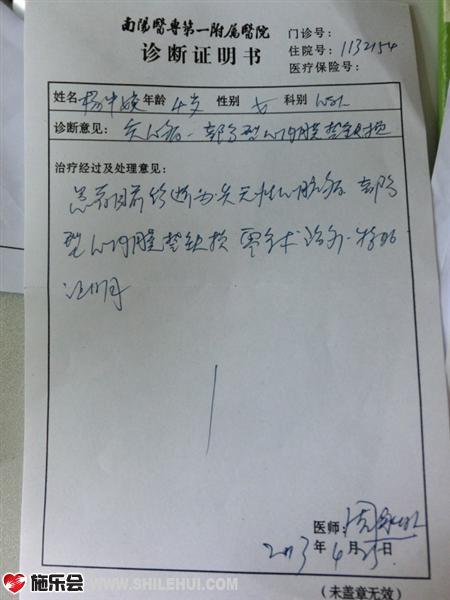 南陽醫專第一附属醫院
诊断证明书
门诊号:
住院号: 1132154
医疗保险号:
姓名 年龄 4岁 性别 女 科别
诊断意见: 先心病 部分型心内膜垫缺损
治疗经过及处理意见:
患者目前诊断为先天性心脏病 部分
型心内膜垫缺损 需手术治疗.特此
证明
医师:
2013 年 4 月 25 日
(未盖章无效)
施乐会 WWW.SHILEHUI.COM